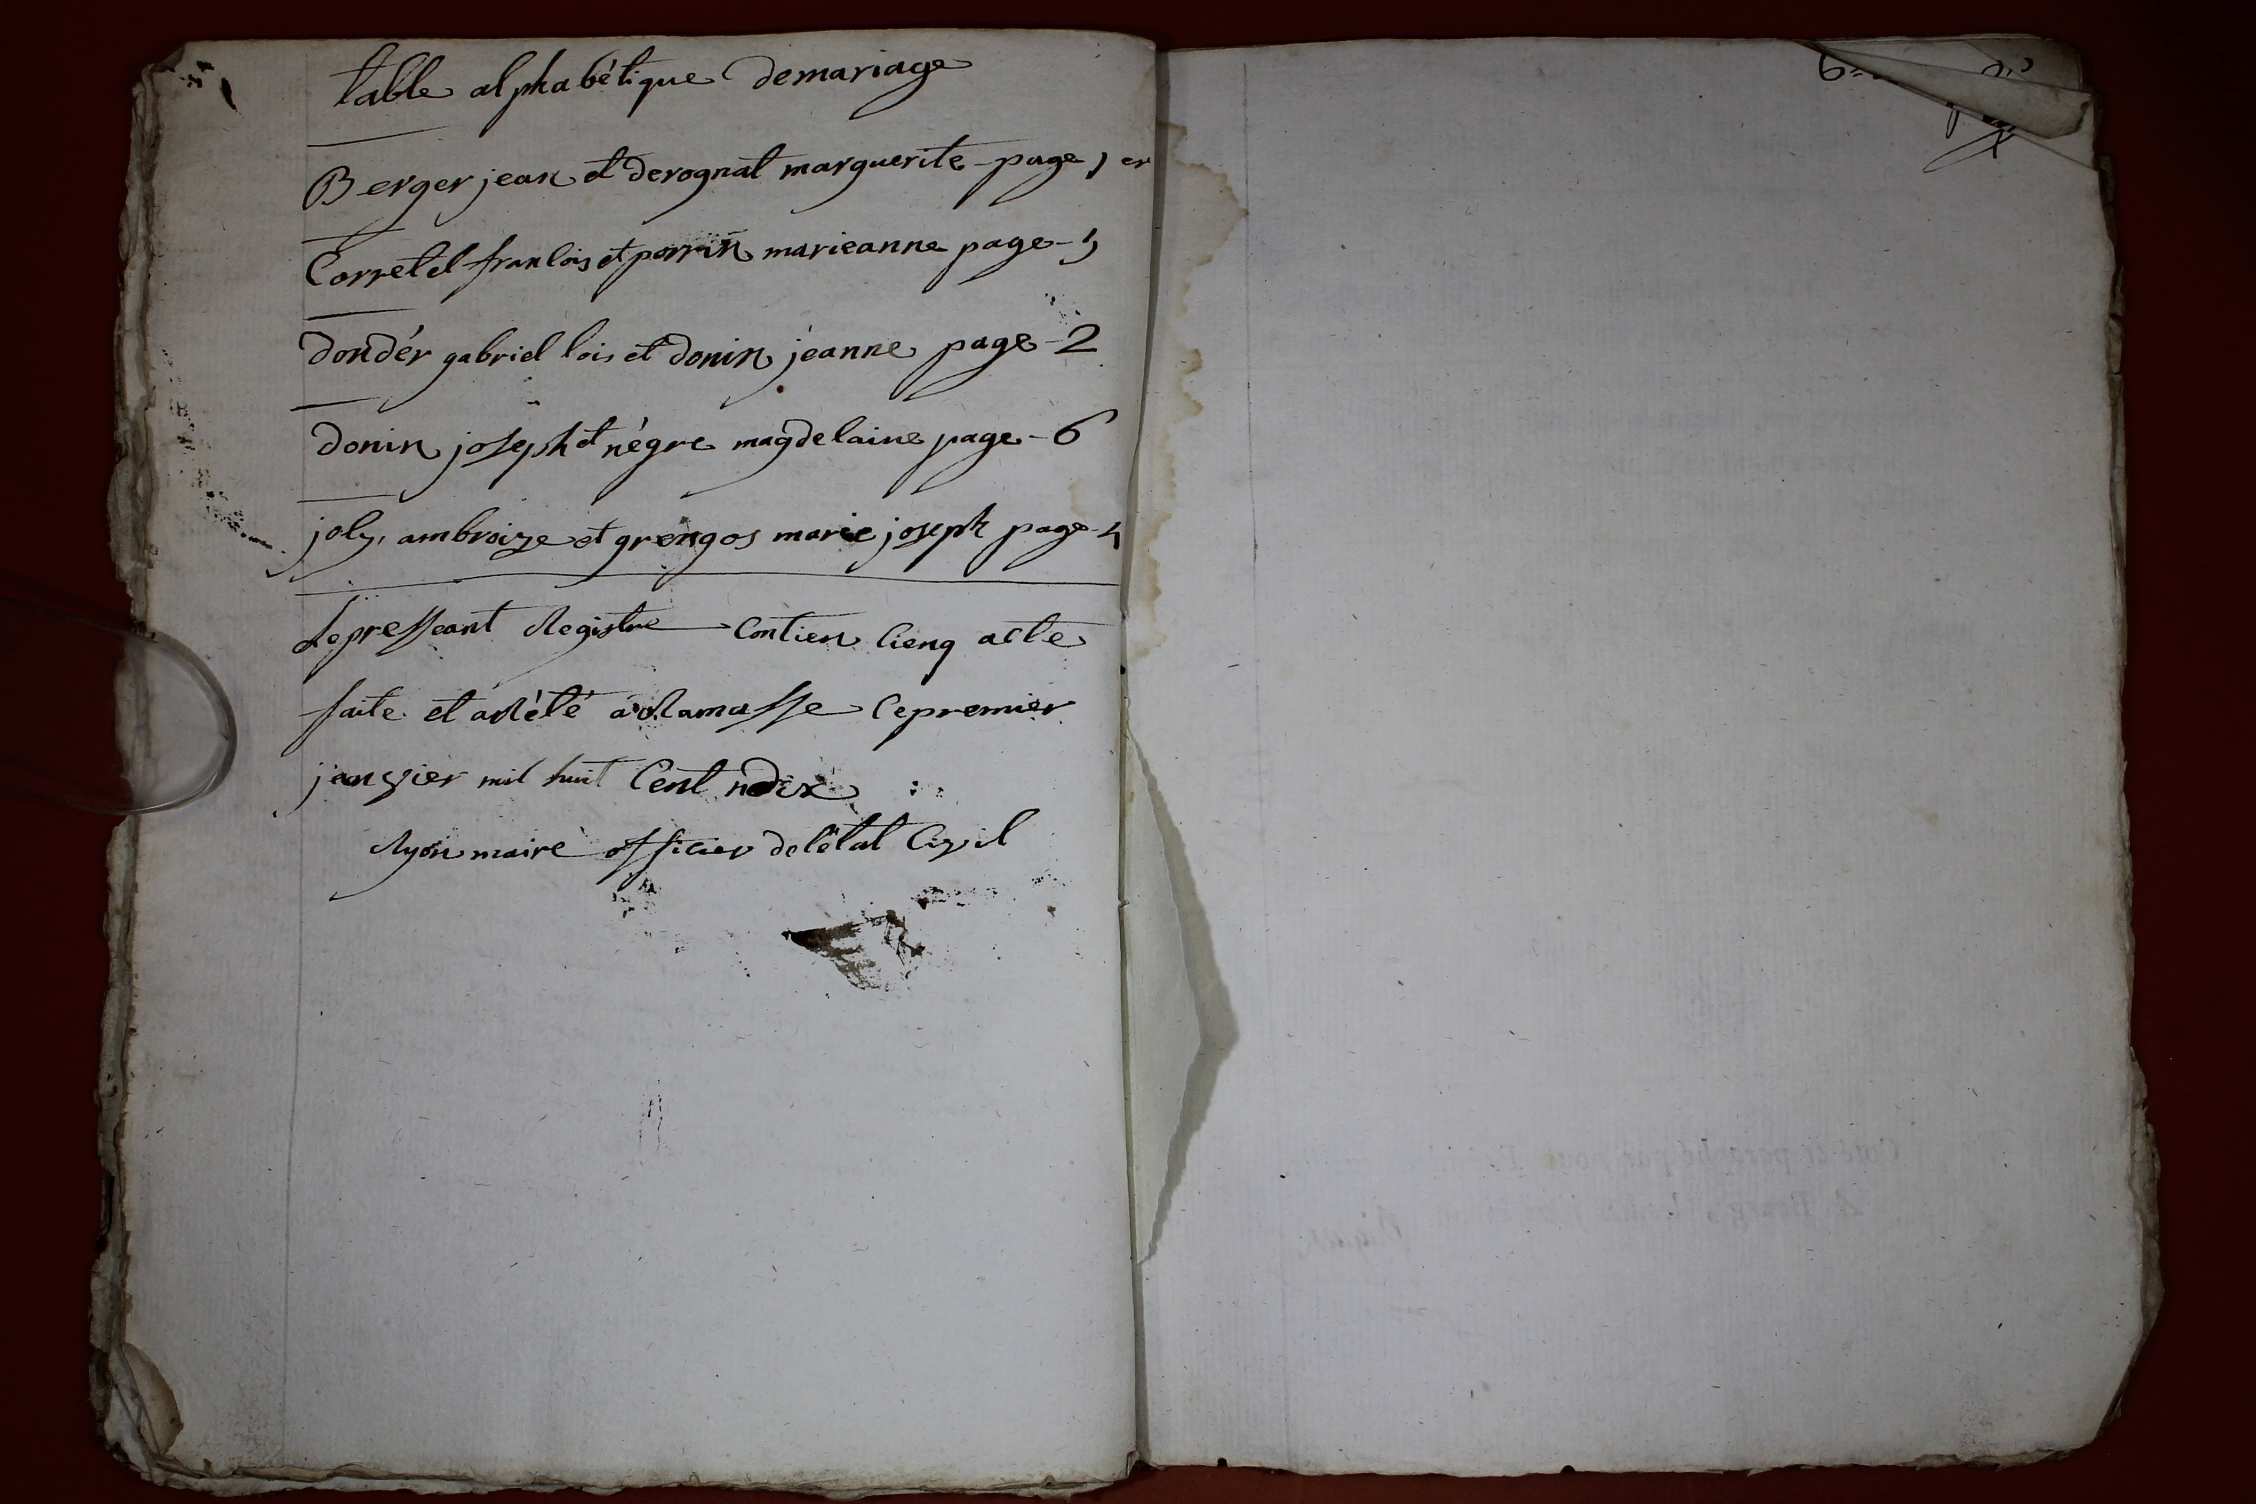 table alphabétique demariage
Berger jean et derognat marguerite - page 1er
Corretel franCois et perrin marieanne page - 5
dondér gabriel lois et donin jeanne page - 2
donin joseph et négre magdelaine page - 6
joly, ambroize et grengos marie joseph page - 4
Lepresseant Registre Contien Cienq acte
faite et arrété a Ramasse Cepremier
janvier mil huit Cent dix
Ryon maire officier deletat Civil